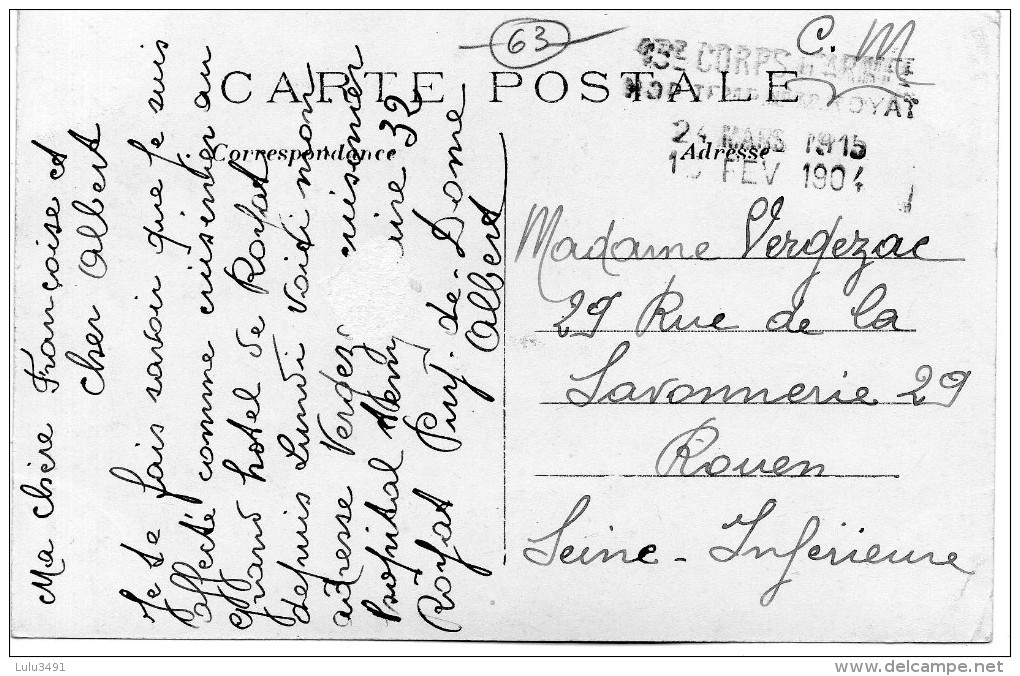 63
C. M
13E CORPS D'ARMÉE
ROYAT
24 MARS 1915
FEV 190
CARTE POSTALE
Correspondance
Adresse
Ma chère Francoise et
cher Albert
Je te fais savoir que je suis
affecté comme cuisinier au
Grand hotel de Royat
depuis Lundi voici mon
adresse Vergez cuisinier
hopital 32
Royat Puy-de-Dome
Albert
Madame Vergezac
29 Rue de la
Savonnerie 29
Rouen
Seine-Inférieure
Lulu3491
www.delcampe.net